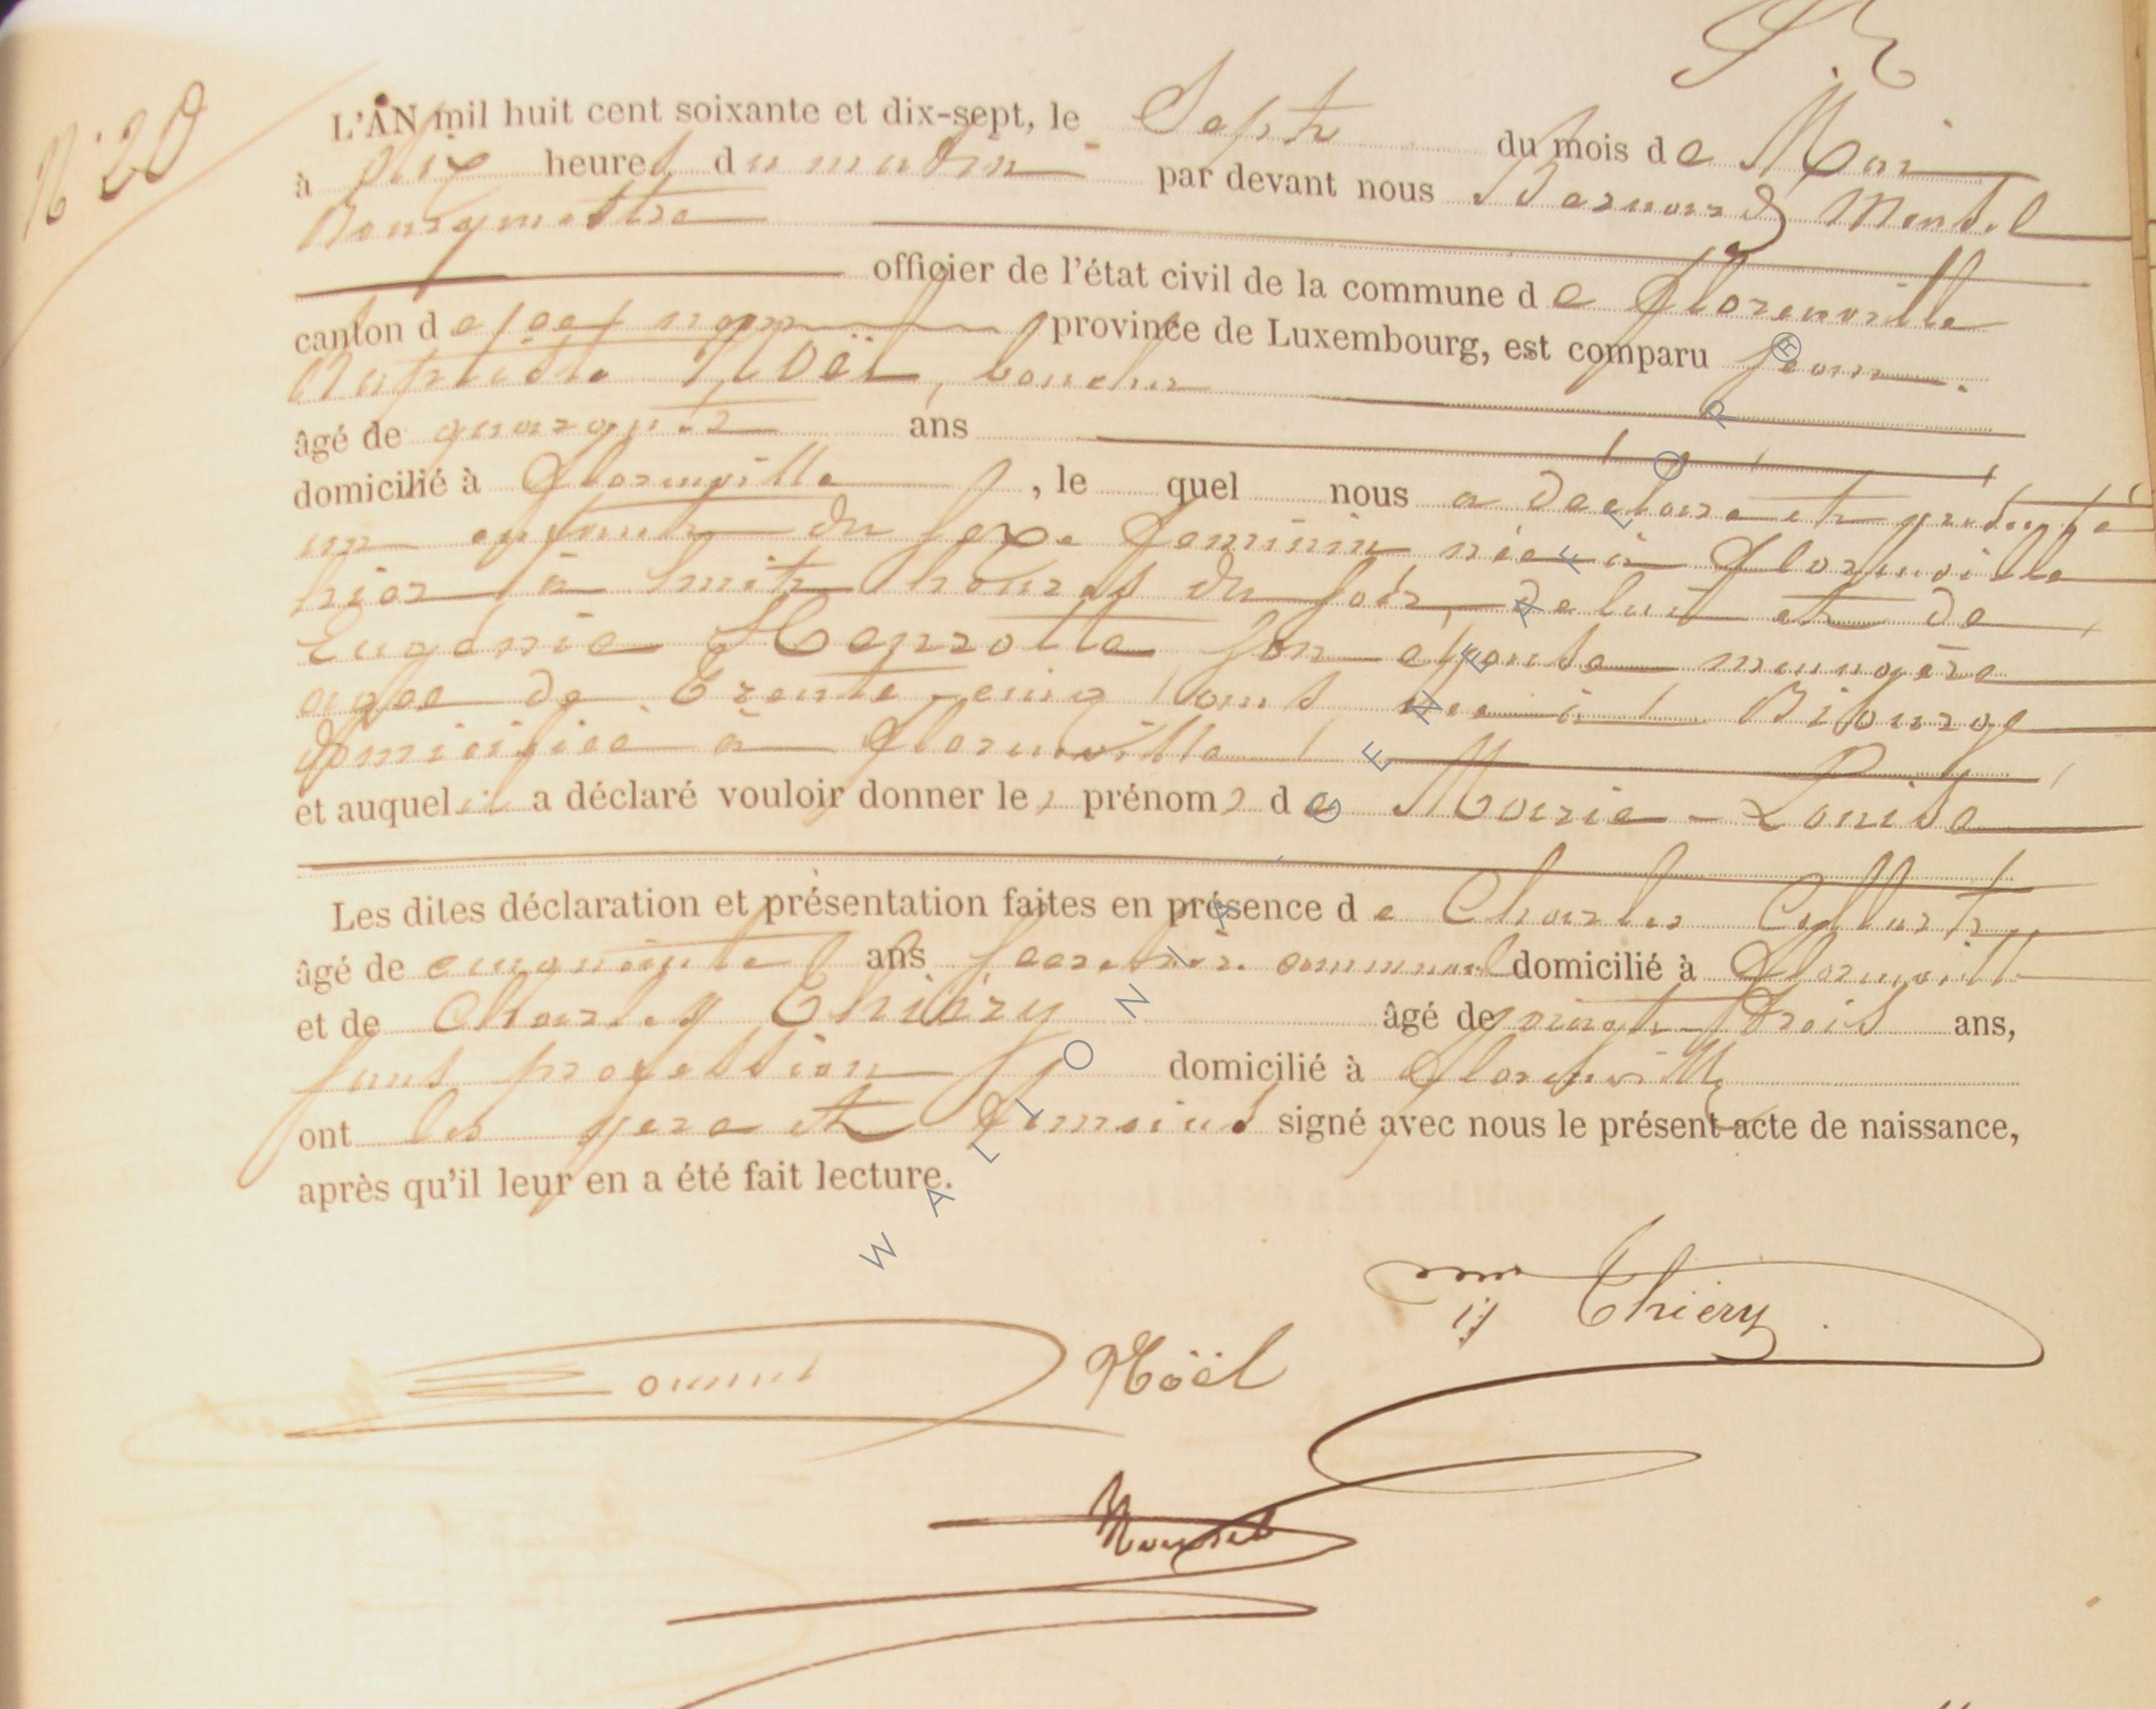 N° 20
L'AN mil huit cent soixante et dix-sept, le Sept du mois de Mai
à dix heures du matin par devant nous Bernard Mentel
Bourgmestre
officier de l'état civil de la commune de Florenville
canton de ce nom province de Luxembourg, est comparu Jean
Baptiste Noël, boucher
âgé de quarante ans
domicilié à Florenville, le quel nous a déclaré et présenté
un enfant du sexe féminin née à Florenville
hier à huit heures du soir, de lui et de
Eugénie son épouse ménagère
agée de trente-cinq ans, née à
domiciliée à Florenville
et auquel il a déclaré vouloir donner les prénoms de Marie-Louise
Les dites déclaration et présentation faites en présence de Charles
âgé de cinquante ans secrétaire communal domicilié à Florenville
et de Charles Thiéry âgé de vingt-trois ans,
sans profession domicilié à Florenville
ont les père et témoins signé avec nous le présent acte de naissance,
après qu'il leur en a été fait lecture.
Thiéry
Noël
WALLONIA, GENEAFFLOR ®